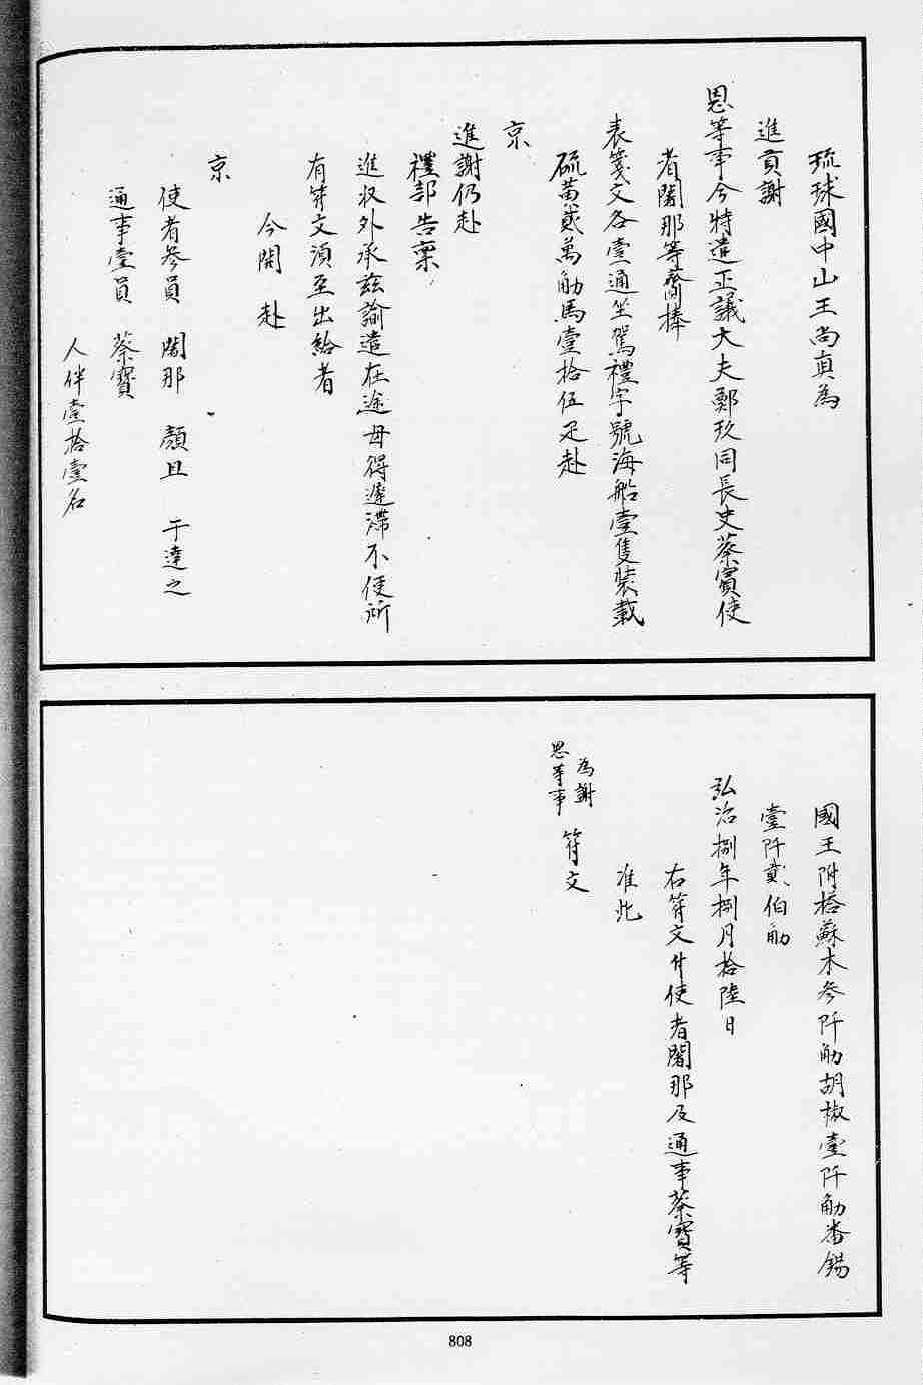 琉球國中山王尚真為
進貢謝
恩等事今特遣正議大夫鄭玖同長史蔡賓使
者闍那等齎捧
表箋文各壹通坐駕禮字號海船壹隻裝載
硫黄貳萬觔馬壹拾伍疋赴
京
進謝仍赴
禮部告稟
進収外承茲諭遣在途毋得遲滯不便所
有符文須至出給者
今開赴
京
使者參員 闍那 顏且 于達之
通事壹員 蔡寶
人伴壹拾壹名
國王附搭蘇木參阡觔胡椒壹阡觔番錫
壹阡貳伯觔
弘治捌年捌月拾陸日
右符文付使者闍那及通事蔡寶等
准此
為謝
恩等事
符文
808